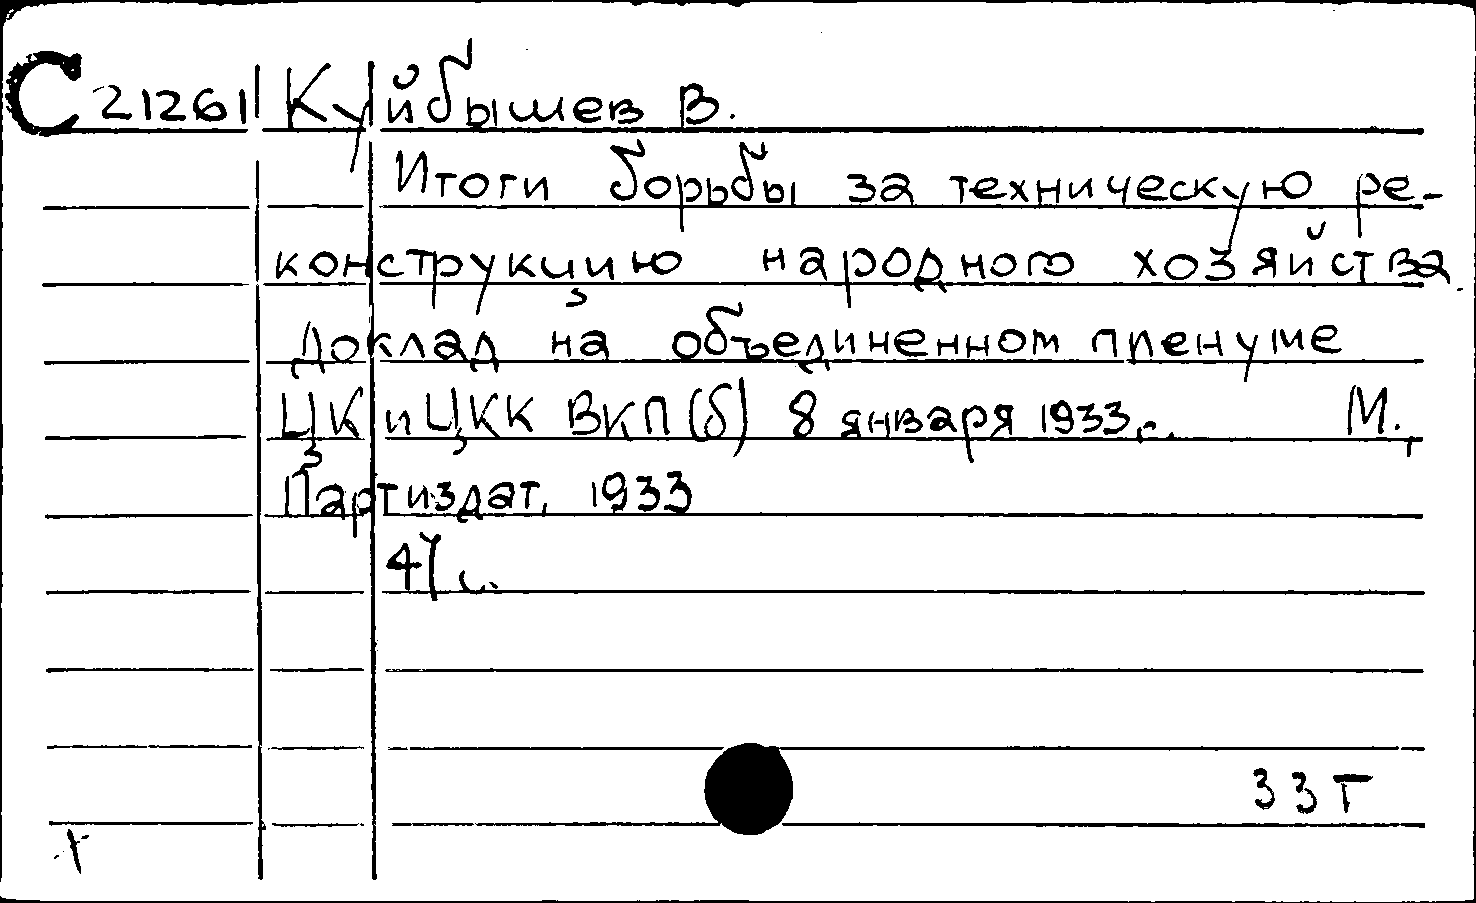 С 21261 Куйбышев В.
Итоги борьбы за техническую ре-
конструкцию народного хозяйства.
Доклад на объединенном пленуме
ЦК и ЦКК ВКП(б) 8 января 1933 г. М.,
Партиздат, 1933
47 с.
33Т